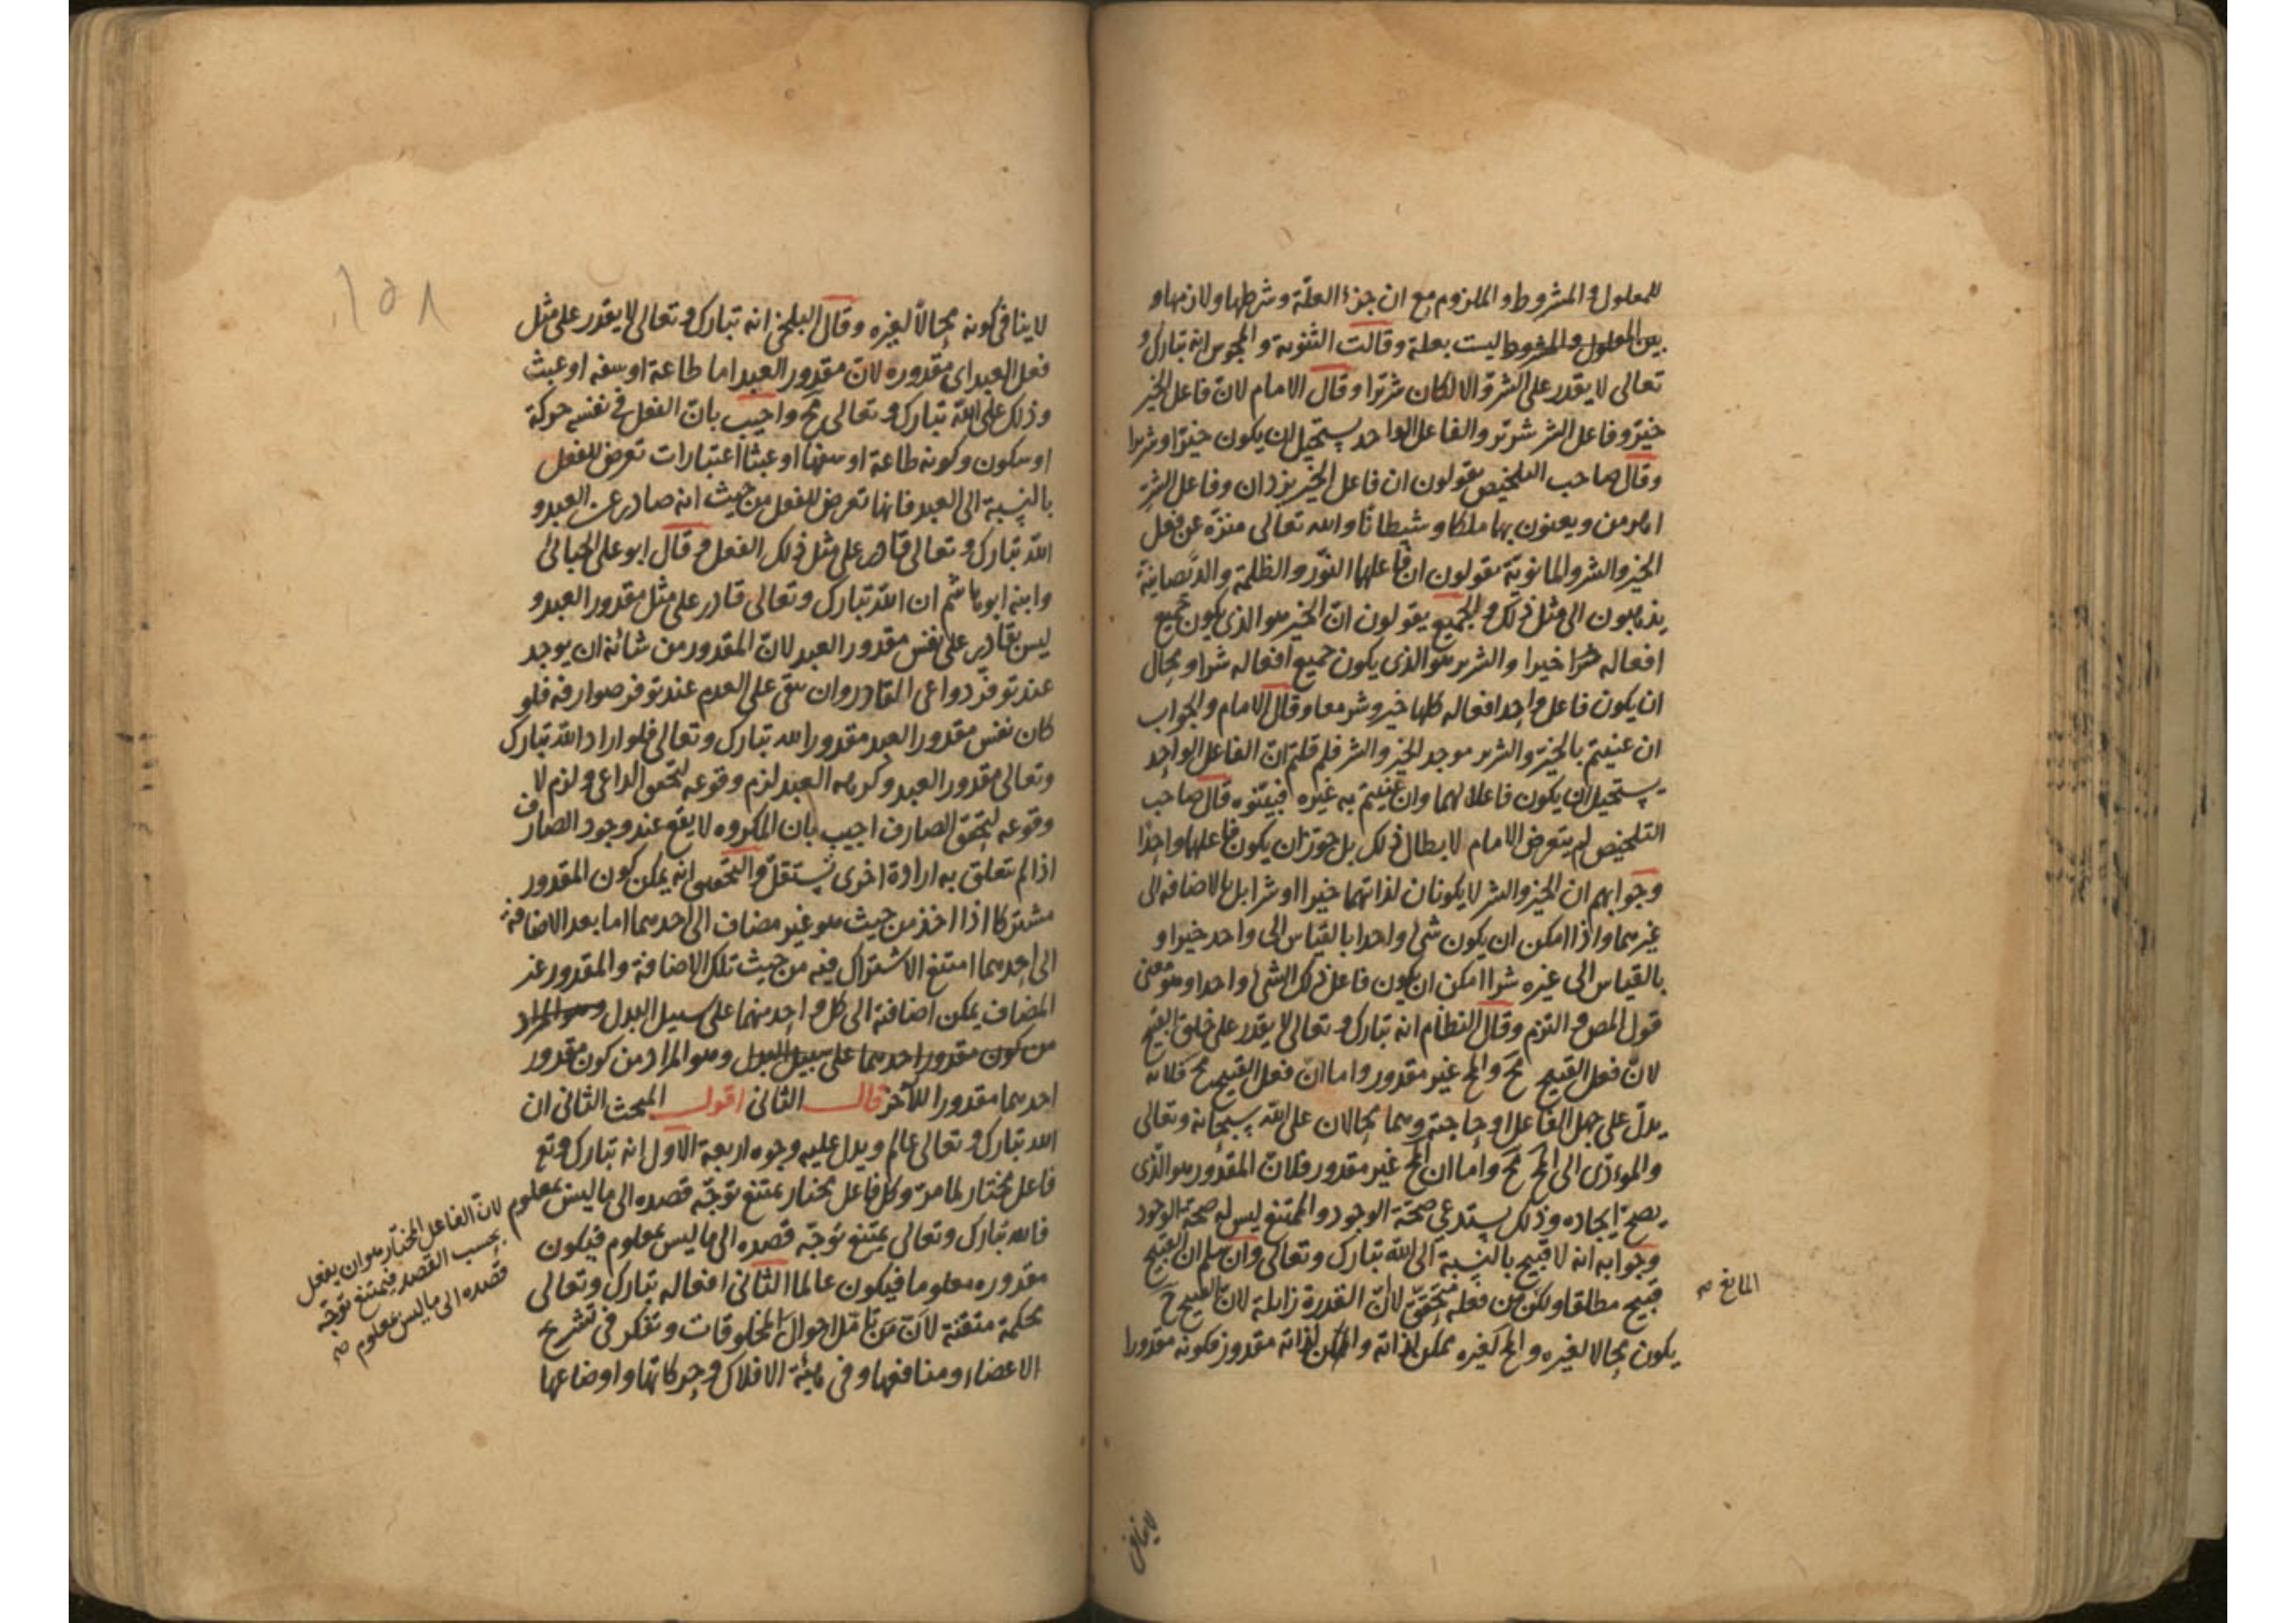 للمعلول والمشروط والملزوم مع ان جزء العلة وشرطها ولازمها و
بين المعلول والمشروط ليست بعلة وقالت الثنوية والمجوس انه تبارك و
تعالى لا يقدر على الشر والا لكان شريرا وقال الامام لان فاعل الخير
خير وفاعل الشر شرير والفاعل الواحد يستحيل ان يكون خيرا وشريرا
وقال صاحب التلخيص يقولون ان فاعل الخير يزدان وفاعل الشر
اهرمن ويعنون بهما ملكا وشيطانا والله تعالى منزه عن فعل
الخير والشر والمانوية يقولون ان فاعلهما النور والظلمة والديصانية
يذهبون الى مثل ذلك والجميع يقولون ان الخير هو الذي يكون جميع
افعاله خيرا والشرير هو الذي يكون جميع افعاله شرا ومحال
ان يكون فاعل واحد افعاله كلها خير وشر معا وقال الامام والجواب
ان عنيتم بالخير والشرير موجد الخير والشر فلم قلتم ان الفاعل الواحد
يستحيل ان يكون فاعلا لهما وان عنيتم به غيره فبينوه قال صاحب
التلخيص لم يتعرض الامام لابطال ذلك بل جوز ان يكون فاعلهما واحدا
وجوابهم ان الخير والشر لا يكونان لذاتهما خيرا او شرا بل بالاضافة الى
غيرهما واذا امكن ان يكون شئ واحد بالقياس الى واحد خيرا و
بالقياس الى غيره شرا امكن ان يكون فاعل ذلك الشئ واحدا وهو معنى
قول المص والتزم وقال النظام انه تبارك وتعالى لا يقدر على خلق القبيح
لان فعل القبيح مح والمح غير مقدور واما ان فعل القبيح مح فلانه
يدل على جهل الفاعل او حاجته وهما محالان على الله سبحانه وتعالى
والمؤدى الى المح مح واما ان المح غير مقدور فلان المقدور هو الذى
يصح ايجاده وذلك يستدعى صحة الوجود والممتنع ليس له صحة الوجود
وجوابه انه لا قبيح بالنسبة الى الله تبارك وتعالى وان سلم ان القبيح
قبيح مطلقا ولكن من فعله متحقق لان القدرة زايلة لان القبيح ح
يكون محالا لغيره والمح لغيره ممكن لذاته والممكن لذاته مقدور فكونه مقدورا
المانع صح
لا ينافى
١٥٨
لا ينافى كونه محالا لغيره وقال البلخى انه تبارك وتعالى لا يقدر على مثل
فعل العبد اى مقدوره لان مقدور العبد اما طاعة او سفه او عبث
وذلك على الله تبارك وتعالى مح واجيب بان الفعل فى نفسه حركة
او سكون وكونه طاعة او سفها او عبثا اعتبارات تعرض للفعل
بالنسبة الى العبد فانها تعرض للفعل من حيث انه صادر عن العبد و
الله تبارك وتعالى قادر على مثل ذلك الفعل وقال ابو على الجبائى
وابنه ابو هاشم ان الله تبارك وتعالى قادر على مثل مقدور العبد و
ليس بقادر على نفس مقدور العبد لان المقدور من شانه ان يوجد
عند توفر دواعى القادر وان يبقى على العدم عند توفر صوارفه فلو
كان نفس مقدور العبد مقدورا لله تبارك وتعالى فلو اراد الله تبارك
وتعالى مقدور العبد وكرهه العبد لزم وقوعه لتحقق الداعى ولزم لا
وقوعه لتحقق الصارف اجيب بان المكروه لا يقع عند وجود الصارف
اذا لم تتعلق به ارادة اخرى تستقل والتحقيق انه يمكن كون المقدور
مشتركا اذا اخذ من حيث هو غير مضاف الى احدهما اما بعد الاضافة
الى احدهما امتنع الاشتراك فيه من حيث تلك الاضافة والمقدور غير
المضاف يمكن اضافته الى كل واحد منهما على سبيل البدل وهو المراد
من كون مقدور احدهما على سبيل البدل وهو المراد من كون مقدور
احدهما مقدورا للآخر قال الثانى اقول المبحث الثانى ان
الله تبارك وتعالى عالم ويدل عليه وجوه اربعة الاول انه تبارك وتع
فاعل مختار لما مر وكل فاعل مختار يمتنع توجه قصده الى ما ليس بمعلوم
فالله تبارك وتعالى يمتنع توجه قصده الى ما ليس بمعلوم فيكون
مقدوره معلوما فيكون عالما الثانى افعاله تبارك وتعالى
محكمة متقنة لان من تامل احوال المخلوقات وتفكر فى تشريح
الاعضاء ومنافعها وفى هيئة الافلاك وحركاتها واوضاعها
لان الفاعل المختار هو ان يفعل
بحسب القصد فيمتنع توجه
قصده الى ما ليس بمعلوم صح